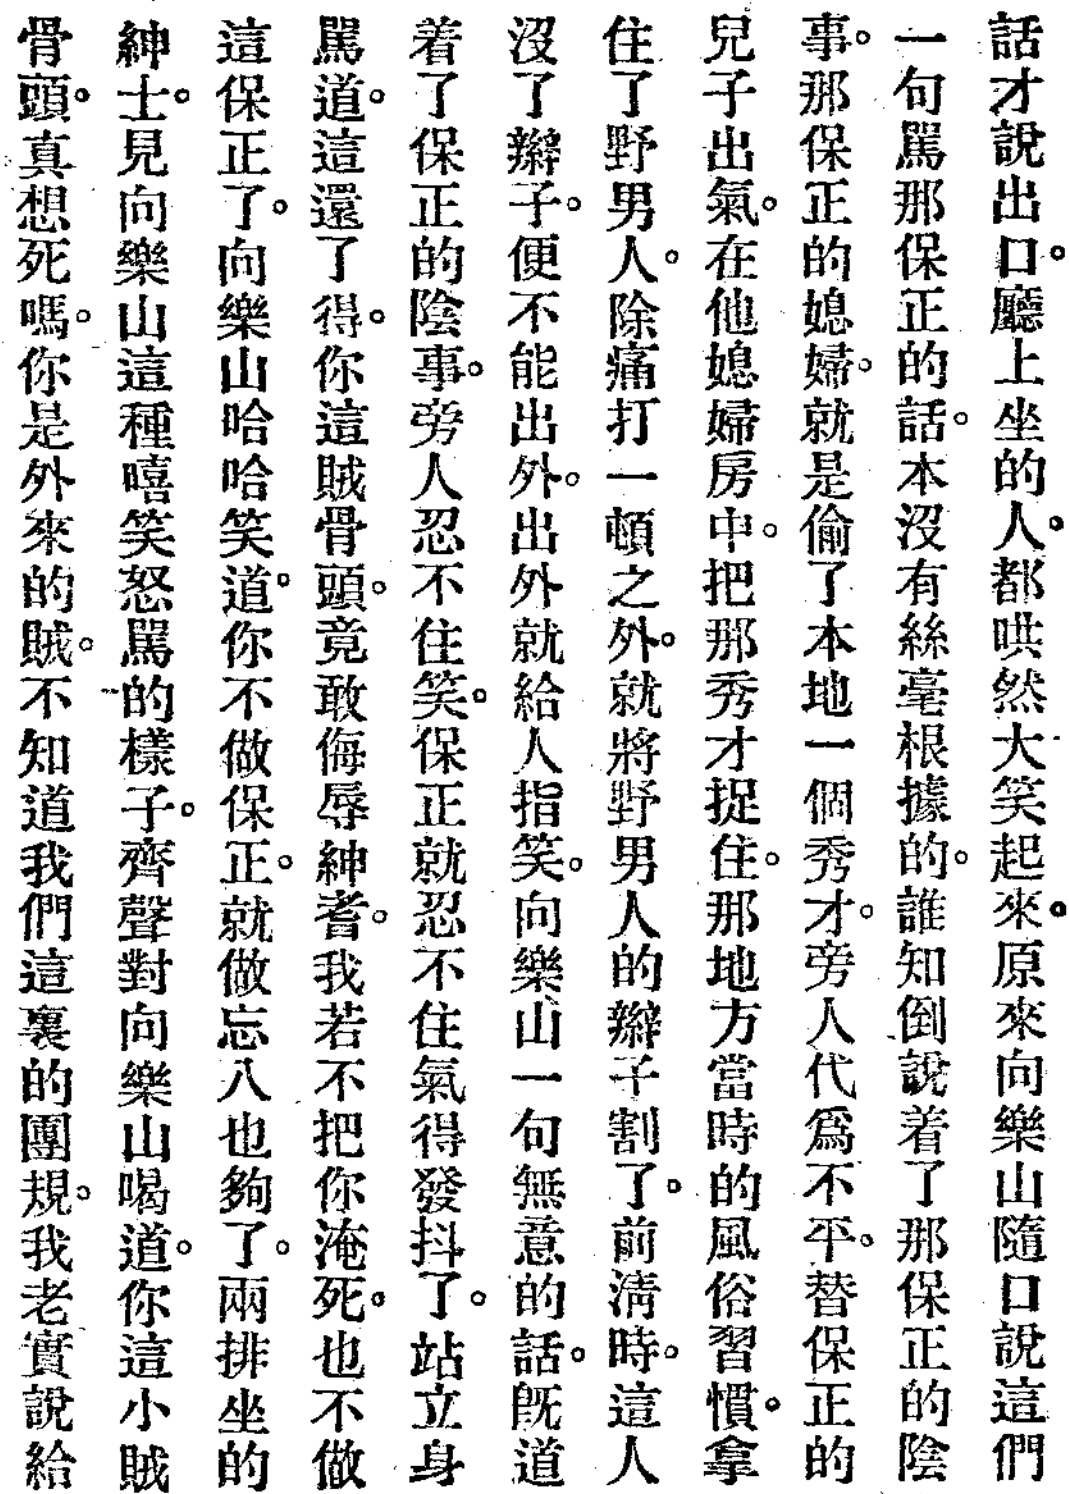 話才說出口。廳上坐的人。都哄然大笑起來。原來向樂山隨口說這們
一句罵那保正的話。本沒有絲毫根據的。誰知倒說着了那保正的陰
事。那保正的媳婦。就是偷了本地一個秀才。旁人代爲不平。替保正的
兒子出氣。在他媳婦房中。把那秀才捉住。那地方當時的風俗習慣。拿
住了野男人。除痛打一頓之外。就將野男人的辮子割了。前淸時。這人
沒了辮子。便不能出外。出外就給人指笑。向樂山一句無意的話。旣道
着了保正的陰事。旁人忍不住笑。保正就忍不住氣得發抖了。站立身
罵道。這還了得。你這賊骨頭。竟敢侮辱紳耆。我若不把你淹死。也不做
這保正了。向樂山哈哈笑道。你不做保正。就做忘八也夠了。兩排坐的
紳士。見向樂山這種嘻笑怒罵的樣子。齊聲對向樂山喝道。你這小賊
骨頭。真想死嗎。你是外來的賊。不知道我們這裏的團規。我老實說給